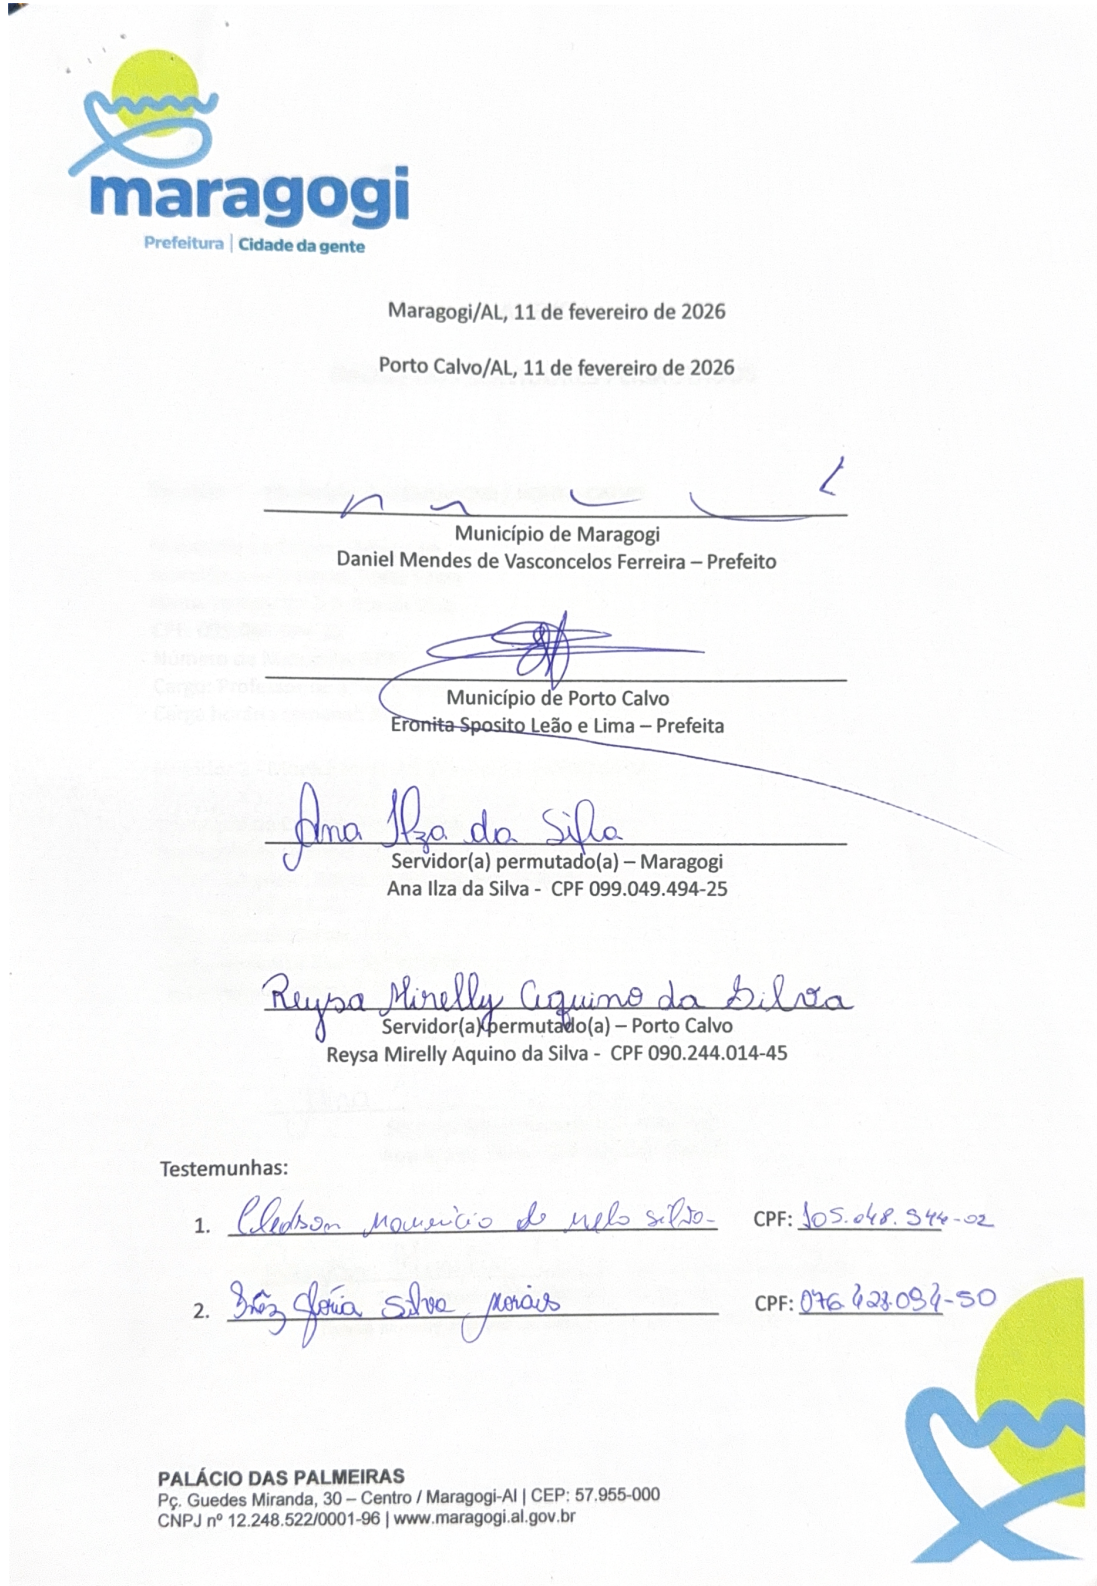 maragogi
Prefeitura | Cidade da gente
Maragogi/AL, 11 de fevereiro de 2026
Porto Calvo/AL, 11 de fevereiro de 2026
Município de Maragogi
Daniel Mendes de Vasconcelos Ferreira – Prefeito
Município de Porto Calvo
Eronita Sposito Leão e Lima – Prefeita
Ana Ilza da Silva
Servidor(a) permutado(a) – Maragogi
Ana Ilza da Silva - CPF 099.049.494-25
Reysa Mirelly Aquino da Silva
Servidor(a) permutado(a) – Porto Calvo
Reysa Mirelly Aquino da Silva - CPF 090.244.014-45
Testemunhas:
1. Cledson Mauricio de Melo Silva CPF: 105.048.944-02
2. Glória Silva Morais CPF:
PALÁCIO DAS PALMEIRAS
Pç. Guedes Miranda, 30 – Centro / Maragogi-Al | CEP: 57.955-000
CNPJ nº 12.248.522/0001-96 | www.maragogi.al.gov.br